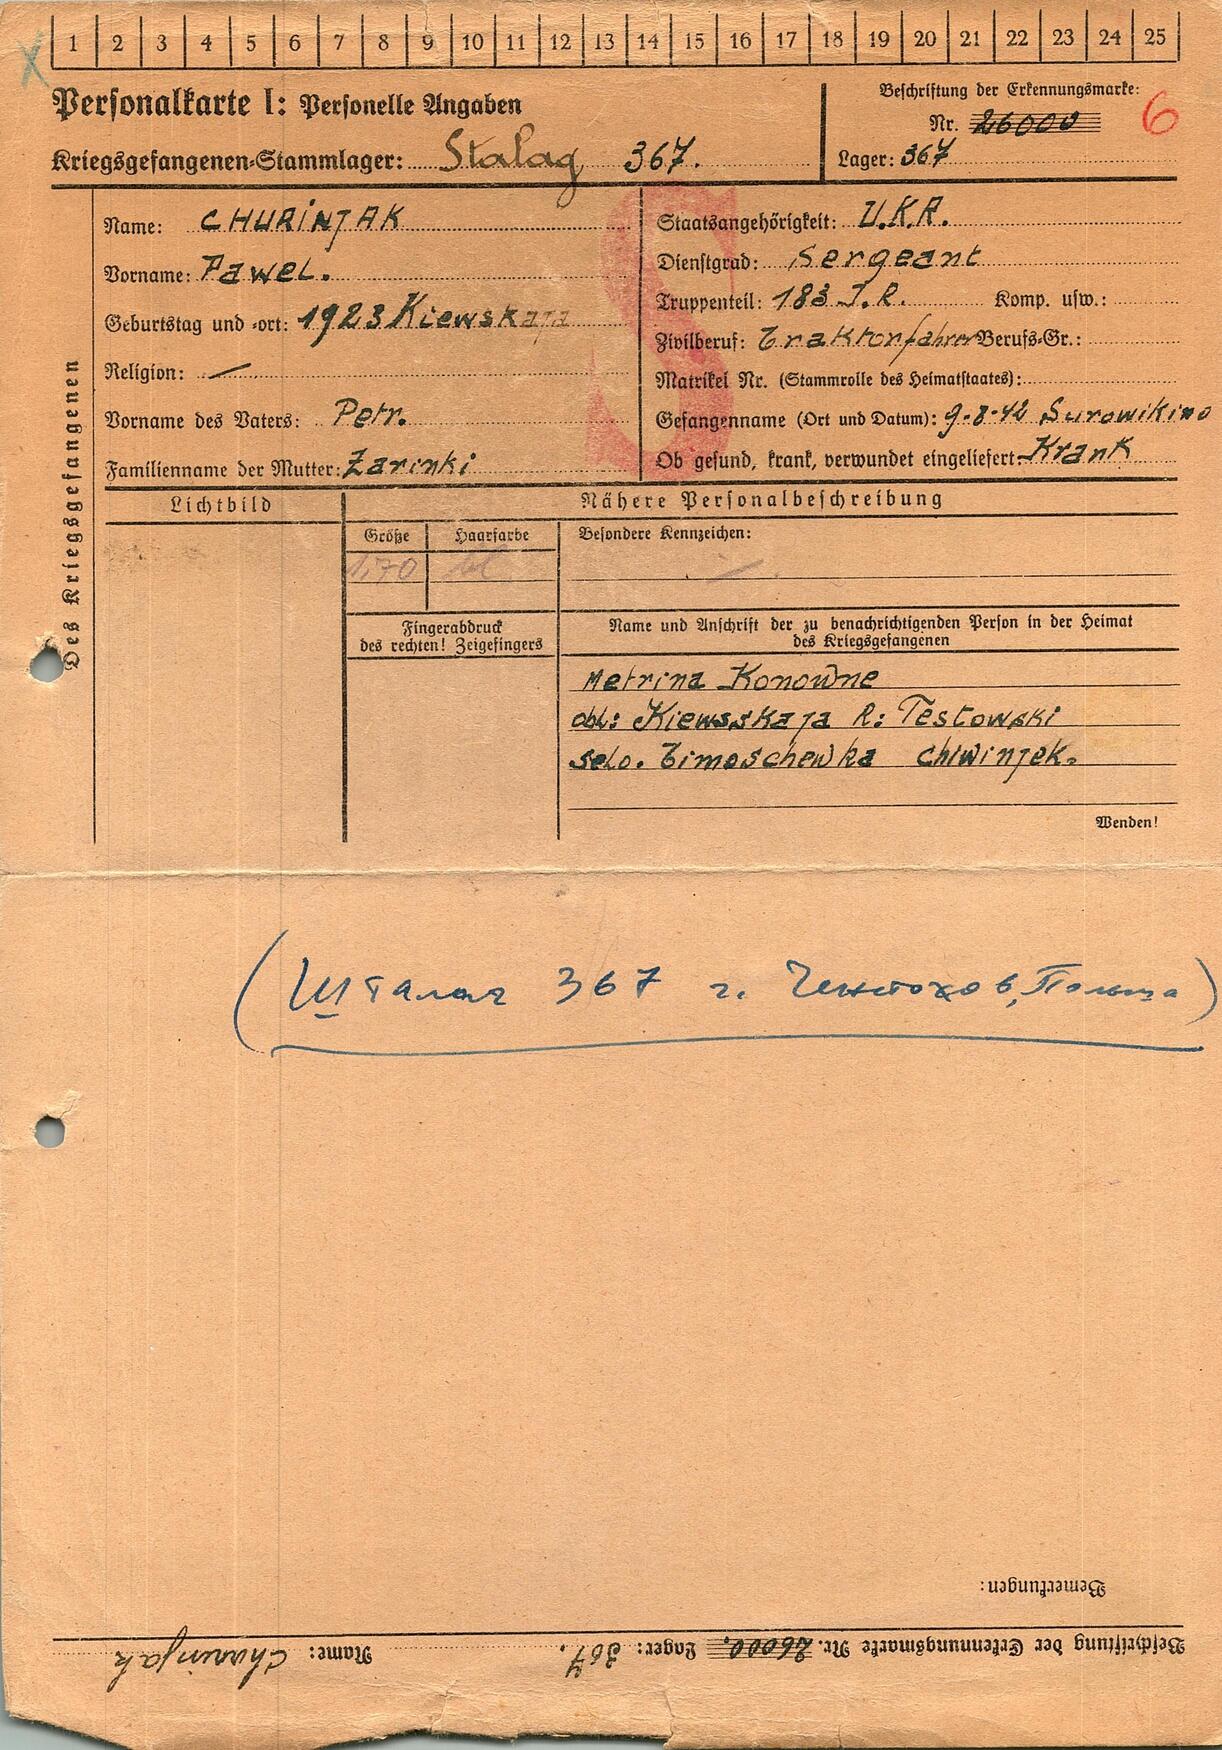 1 2 3 4 5 6 7 8 9 10 11 12 13 14 15 16 17 18 19 20 21 22 23 24 25
Personalkarte I: Personelle Angaben
Kriegsgefangenen-Stammlager: Stalag 367.
Beschriftung der Erkennungsmarke:
Nr. 26000 6
Lager: 367
Des Kriegsgefangenen
Name: CHURINJAK
Vorname: Pawel.
Geburtstag und -ort: 1923 Kiewskaja
Religion: —
Vorname des Vaters: Petr.
Familienname der Mutter: Zarinki
Staatsangehörigkeit: U.K.R.
Dienstgrad: Sergeant
Truppenteil: 183 J.R. Komp. usw.:
Zivilberuf: Traktorfahrer Berufs-Gr.:
Matrikel Nr. (Stammrolle des Heimatstaates):
Gefangenname (Ort und Datum): 9-8-42 Surowikino
Ob gesund, krank, verwundet eingeliefert: Krank
S
Lichtbild
Nähere Personalbeschreibung
Größe Haarfarbe Besondere Kennzeichen:
1,70 bl —
Fingerabdruck
des rechten! Zeigefingers
Name und Anschrift der zu benachrichtigenden Person in der Heimat
des Kriegsgefangenen
Metrina Konowne
obl: Kiewsskaja R: Testowski
selo. Timoschewka Chiwinjek.
Wenden!
(Шталаг 367 г. Ченстохов, Польша)
Bemerkungen:
Beschriftung der Erkennungsmarke Nr. 26000. Lager: 367. Name: Churinjak